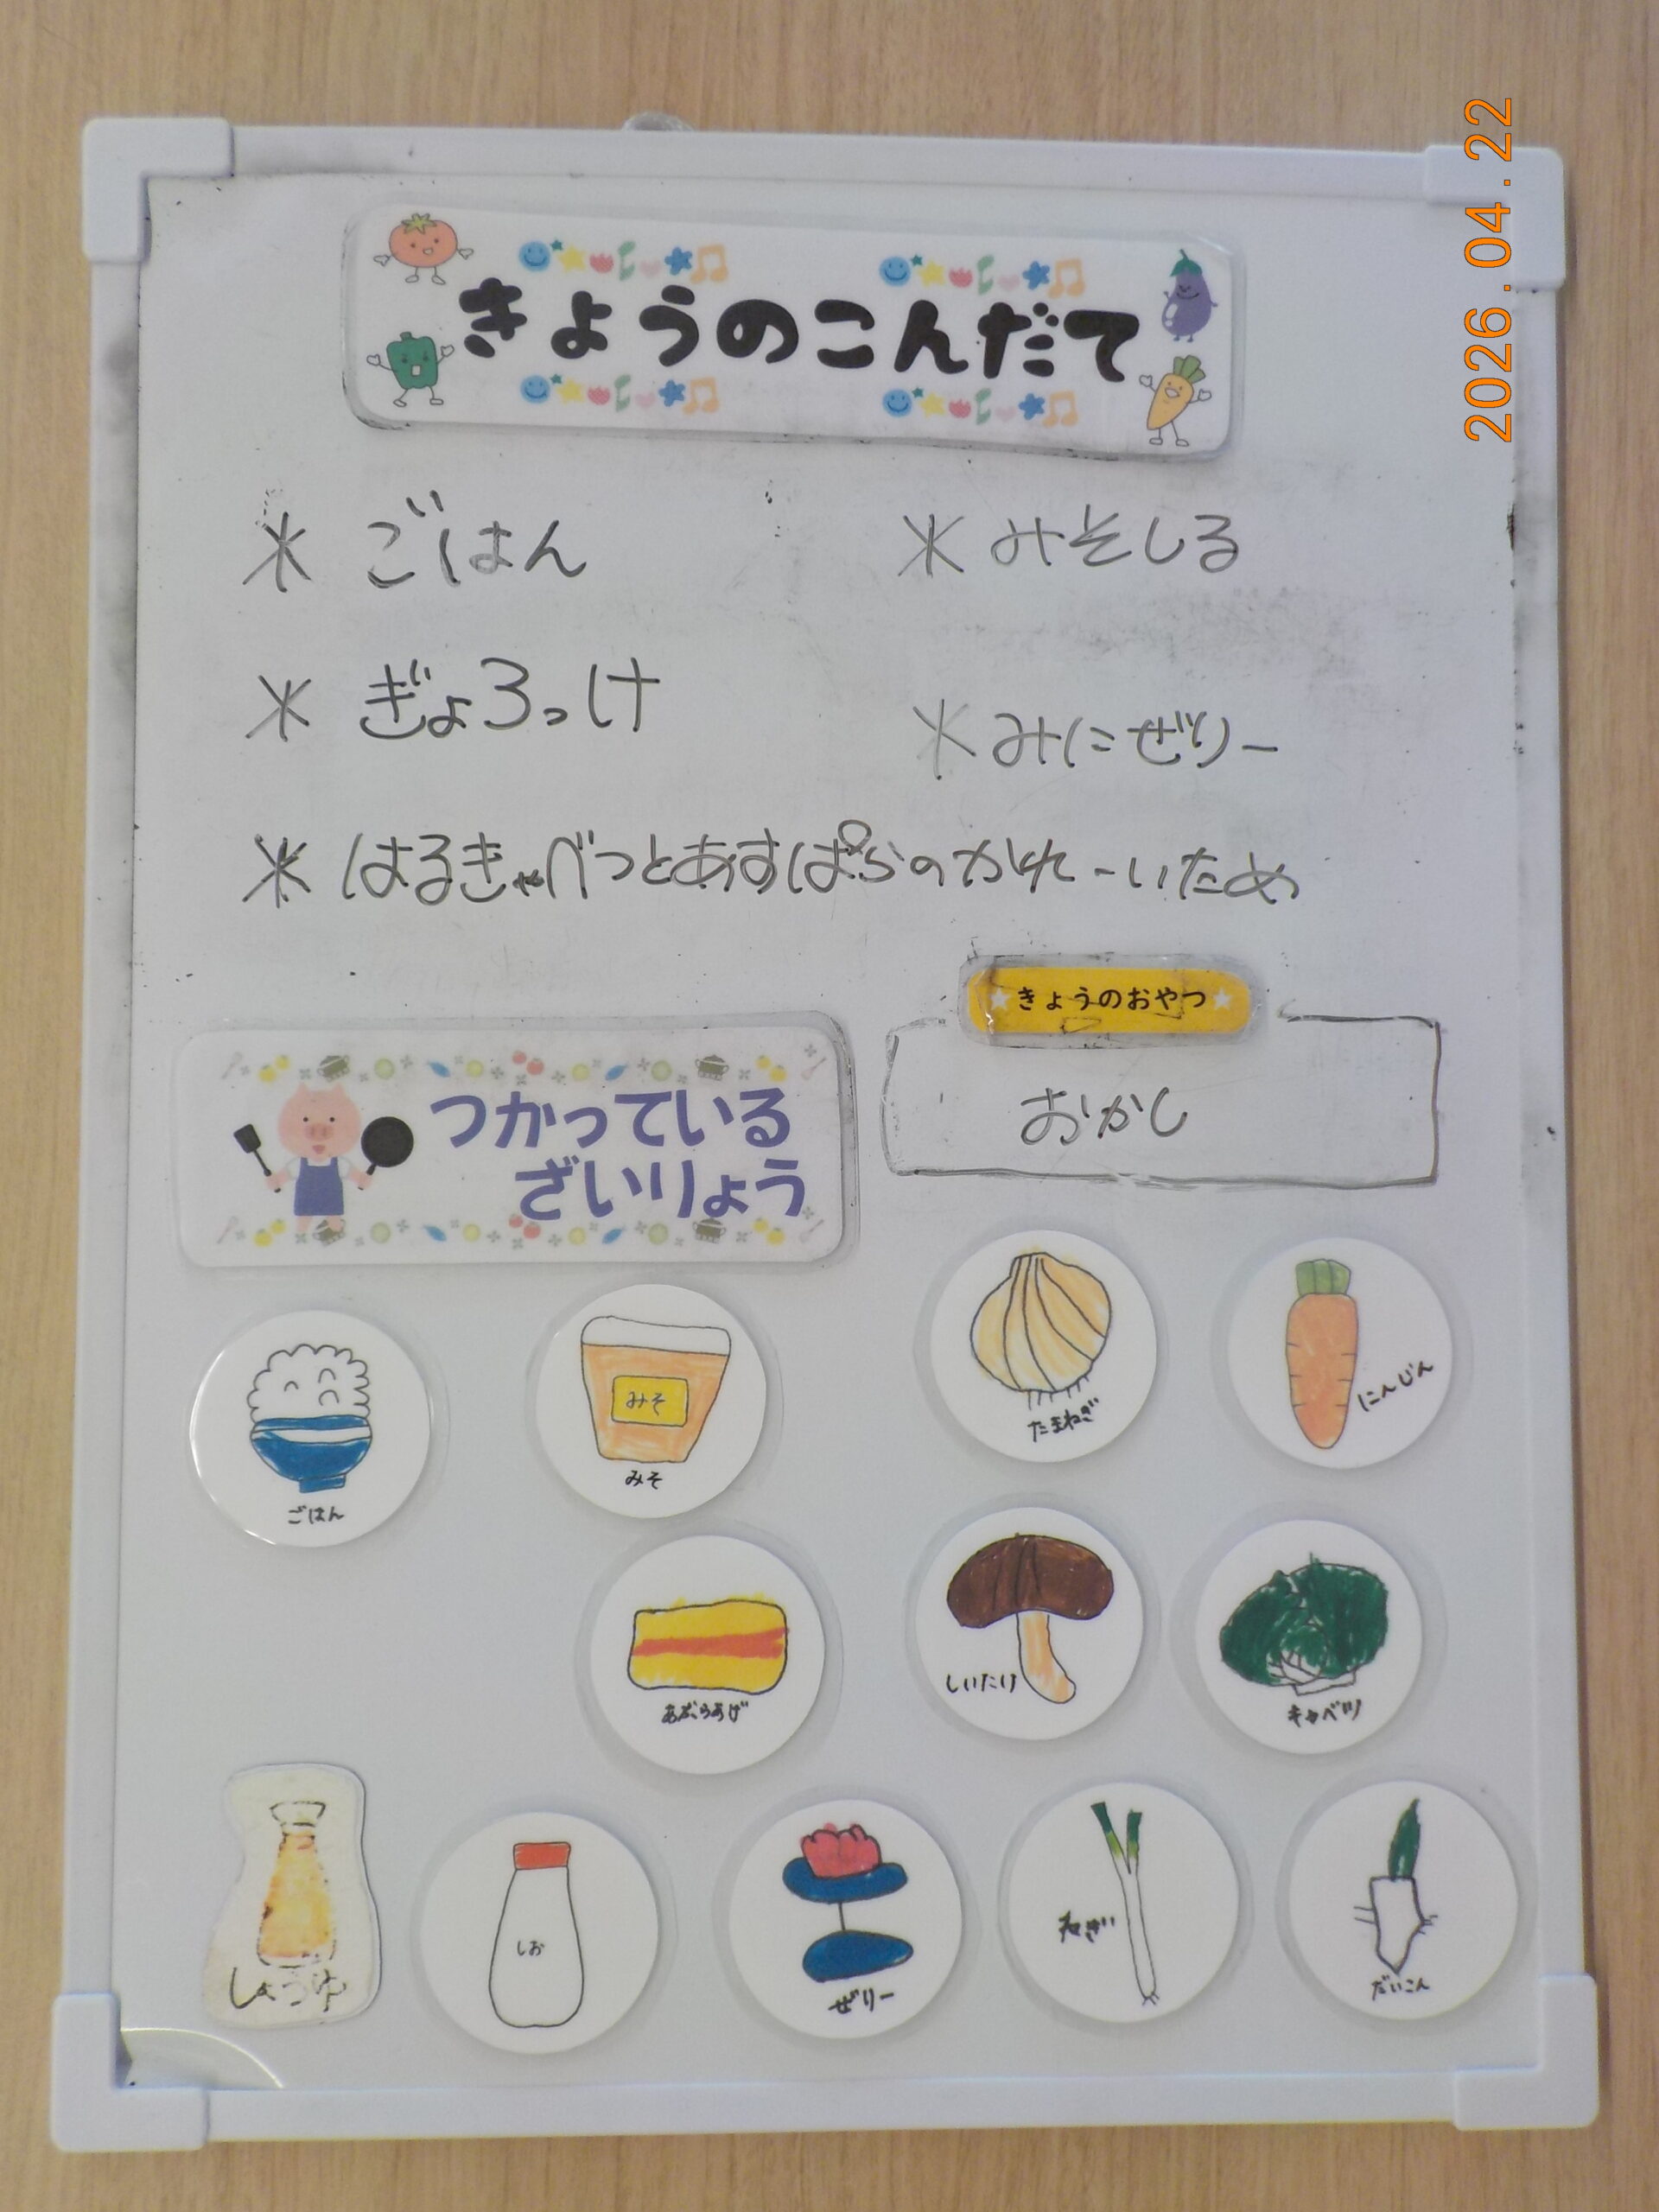 2026.04.22
きょうのこんだて
* ごはん
* みそしる
* ぎょろっけ
* みにぜりー
* はるきゃべつとあすぱらのかれーいため
★きょうのおやつ★
おかし
つかっている
ざいりょう
ごはん
みそ
みそ
たまねぎ
にんじん
あぶらあげ
しいたけ
キャベツ
しょうゆ
しお
ぜりー
ねぎ
だいこん